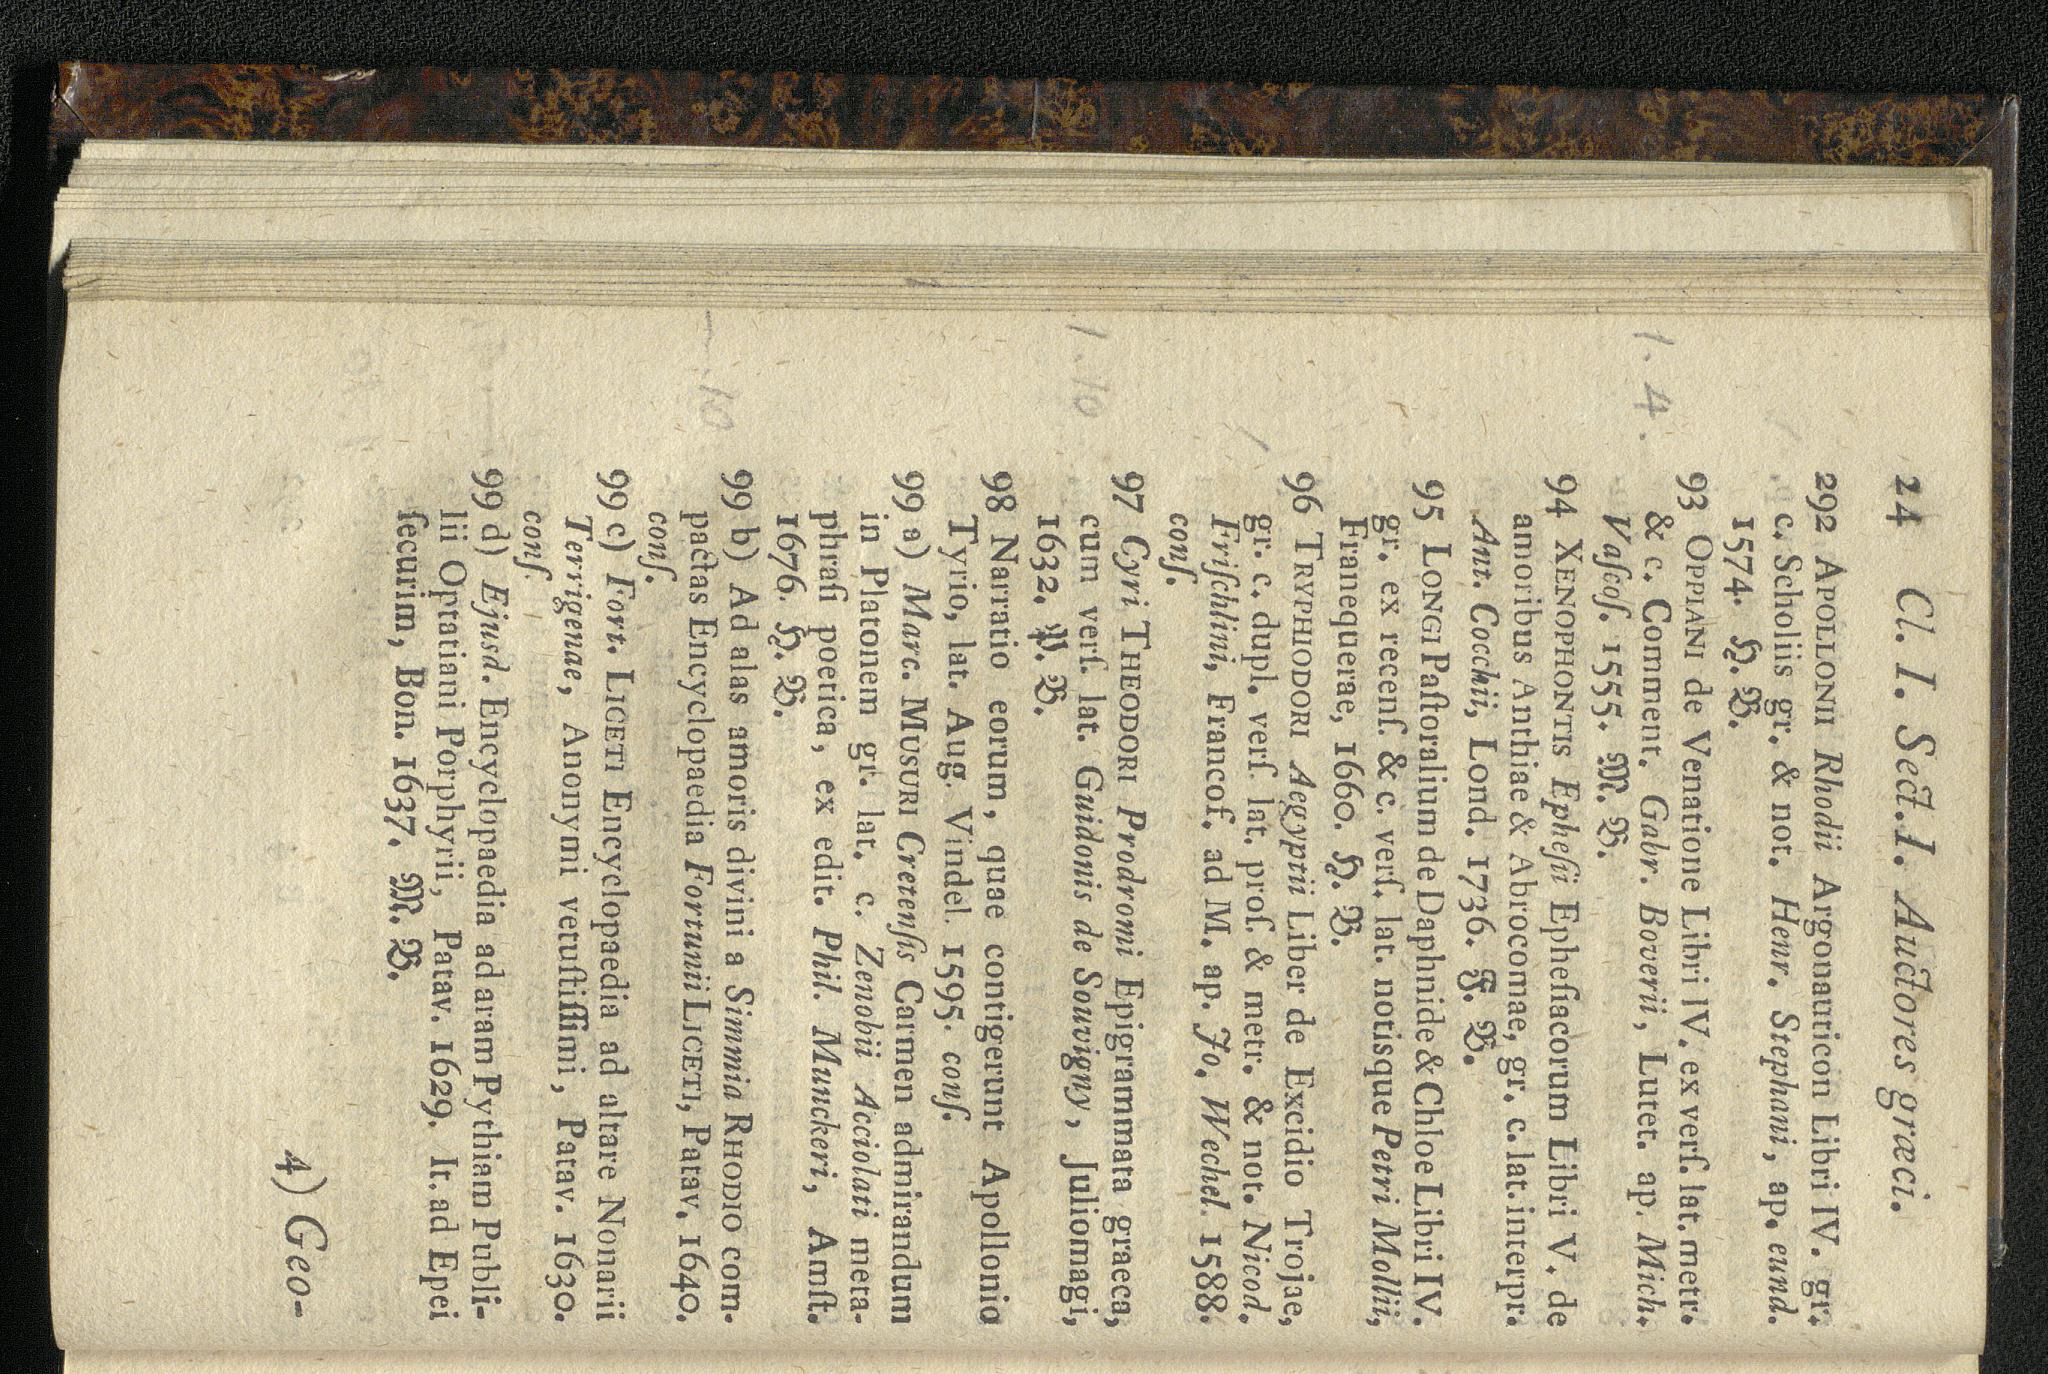 24 Cl. I. Sect. I. Auctores græci.
292 APOLLONII Rhodii Argonauticon Libri IV. gr.
c. Scholiis gr. & not. Henr. Stephani, ap. eund.
1574. H. B.
93 OPPIANI de Venatione Libri IV. ex verſ. lat. metr.
& c. Comment. Gabr. Boverii, Lutet. ap. Mich.
Vaſcoſ. 1555. M. B.
1. 4.
94 XENOPHONTIS Epheſii Epheſiacorum Libri V. de
amoribus Anthiae & Abrocomae, gr. c. lat. interpr.
Ant. Cocchii, Lond. 1736. F. B.
95 LONGI Paſtoralium de Daphnide & Chloe Libri IV.
gr. ex recenſ. & c. verſ. lat. notisque Petri Mollii,
Franequerae, 1660. H. B.
96 TRYPHIODORI Aegyptii Liber de Excidio Trojae,
gr. c. dupl. verſ. lat. proſ. & metr. & not. Nicod.
Friſchlini, Francof. ad M. ap. Jo. Wechel. 1588.
conſ.
97 Cyri THEODORI Prodromi Epigrammata graeca,
cum verſ. lat. Guidonis de Souvigny, Juliomagi,
1632. P. B.
1. 10
98 Narratio eorum, quae contigerunt Apollonio
Tyrio, lat. Aug. Vindel. 1595. conſ.
99 a) Marc. MUSURI Cretenſis Carmen admirandum
in Platonem gr. lat. c. Zenobii Acciolati meta-
phraſi poetica, ex edit. Phil. Munckeri, Amſt.
1676. H. B.
99 b) Ad alas amoris divini a Simmia RHODIO com-
pactas Encyclopaedia Fortunii LICETI, Patav. 1640.
conſ.
—. 10
99 c) Fort. LICETI Encyclopaedia ad altare Nonarii
Terrigenae, Anonymi vetuſtiſſimi, Patav. 1630.
conſ.
99 d) Ejusd. Encyclopaedia ad aram Pythiam Publi-
lii Optatiani Porphyrii, Patav. 1629. It. ad Epei
ſecurim, Bon. 1637. M. B.
4) Geo-